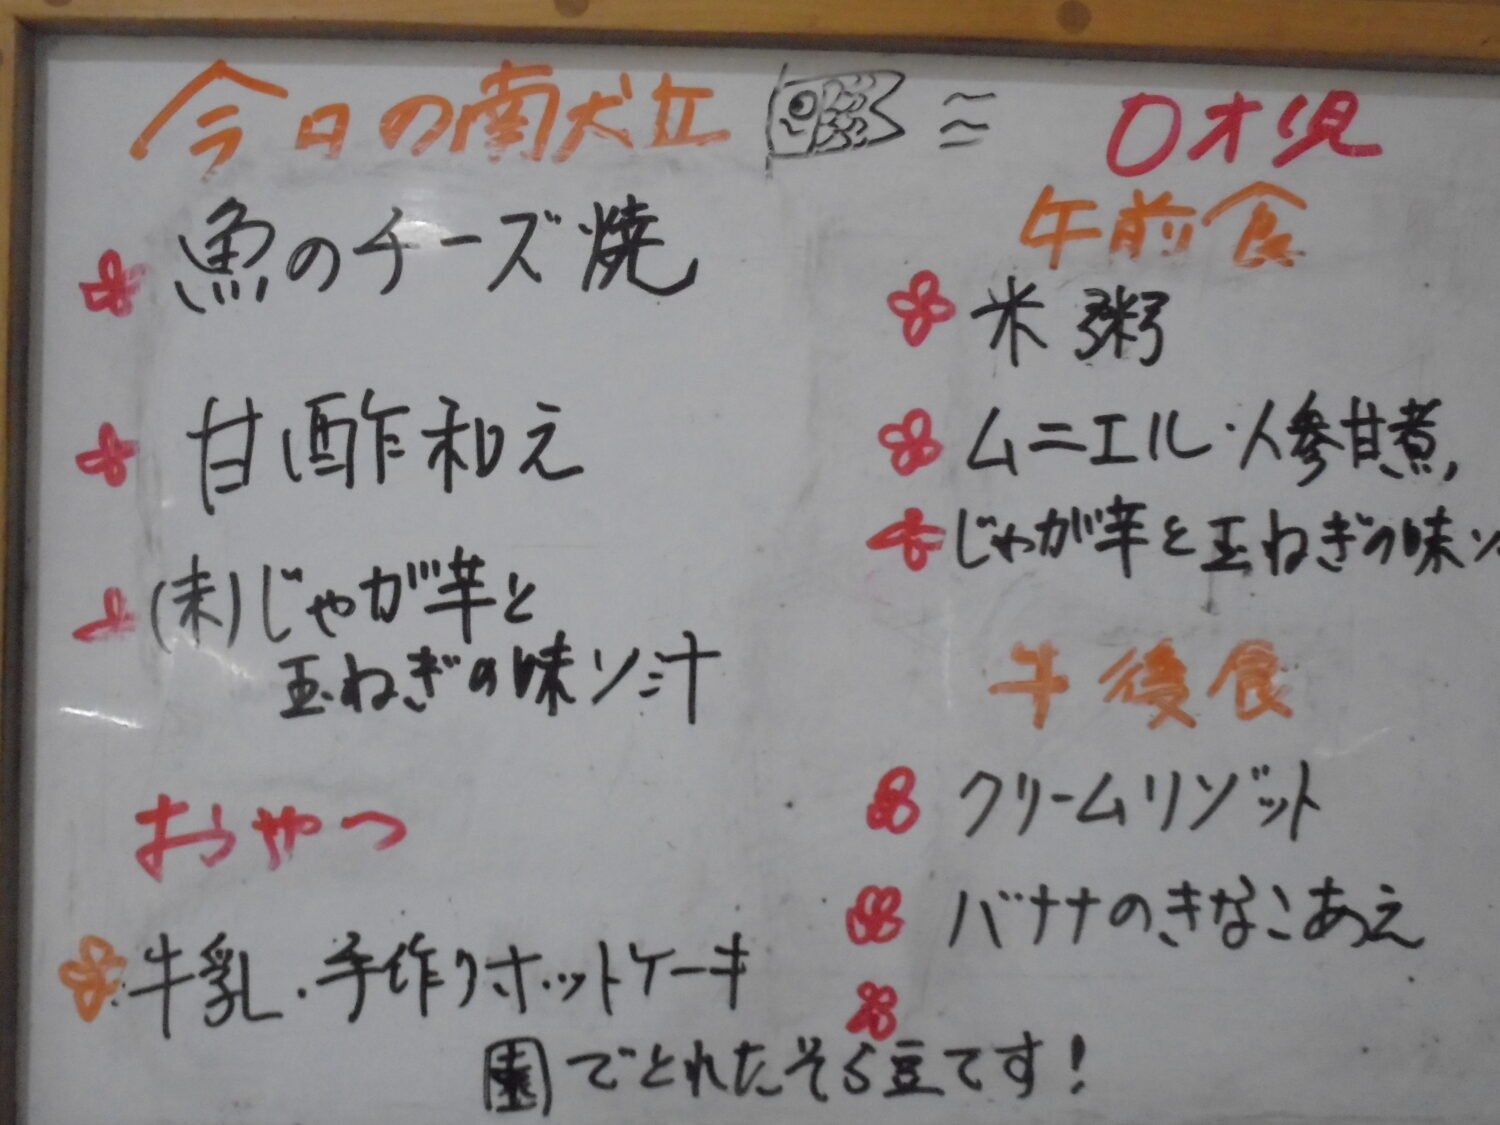 今日の献立
魚のチーズ焼
甘酢和え
(未)じゃが芋と
玉ねぎの味ソ汁
おやつ
牛乳・手作りホットケーキ
園でとれたそら豆です!
0才児
午前食
米粥
ムニエル・人参甘煮
じゃが芋と玉ねぎの味ソ
午後食
クリームリゾット
バナナのきなこあえ